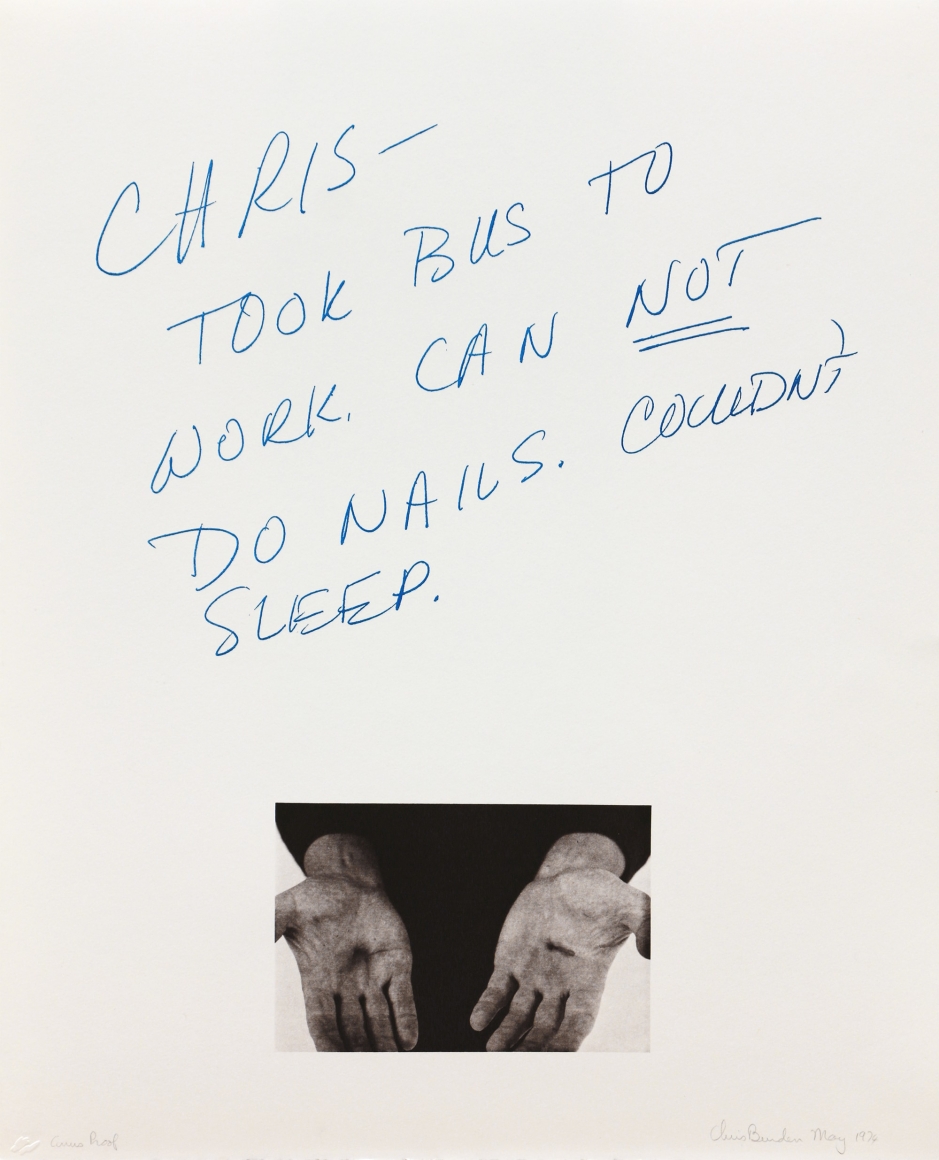 CHRIS—
TOOK BUS TO
WORK. CAN NOT
DO NAILS. COULDN'T
SLEEP.
Proof
Chris Burden May 1976